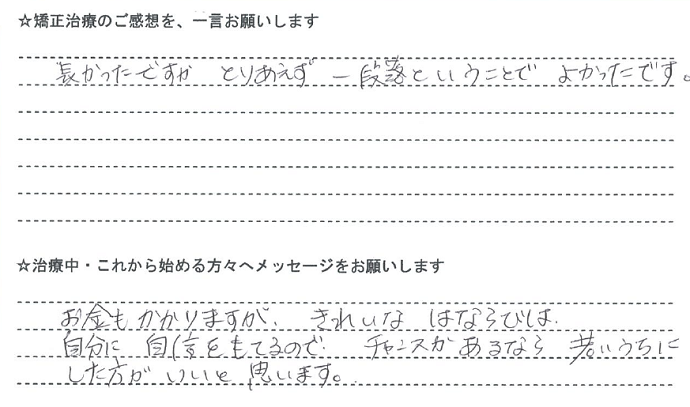 ☆矯正治療のご感想を、一言お願いします
長かったですが とりあえず 一段落ということで よかったです。
☆治療中・これから始める方々へメッセージをお願いします
お金もかかりますが、きれいな はならびは、
自分に 自信をもてるので、チャンスがあるなら 若いうちに
した方が いいと 思います。